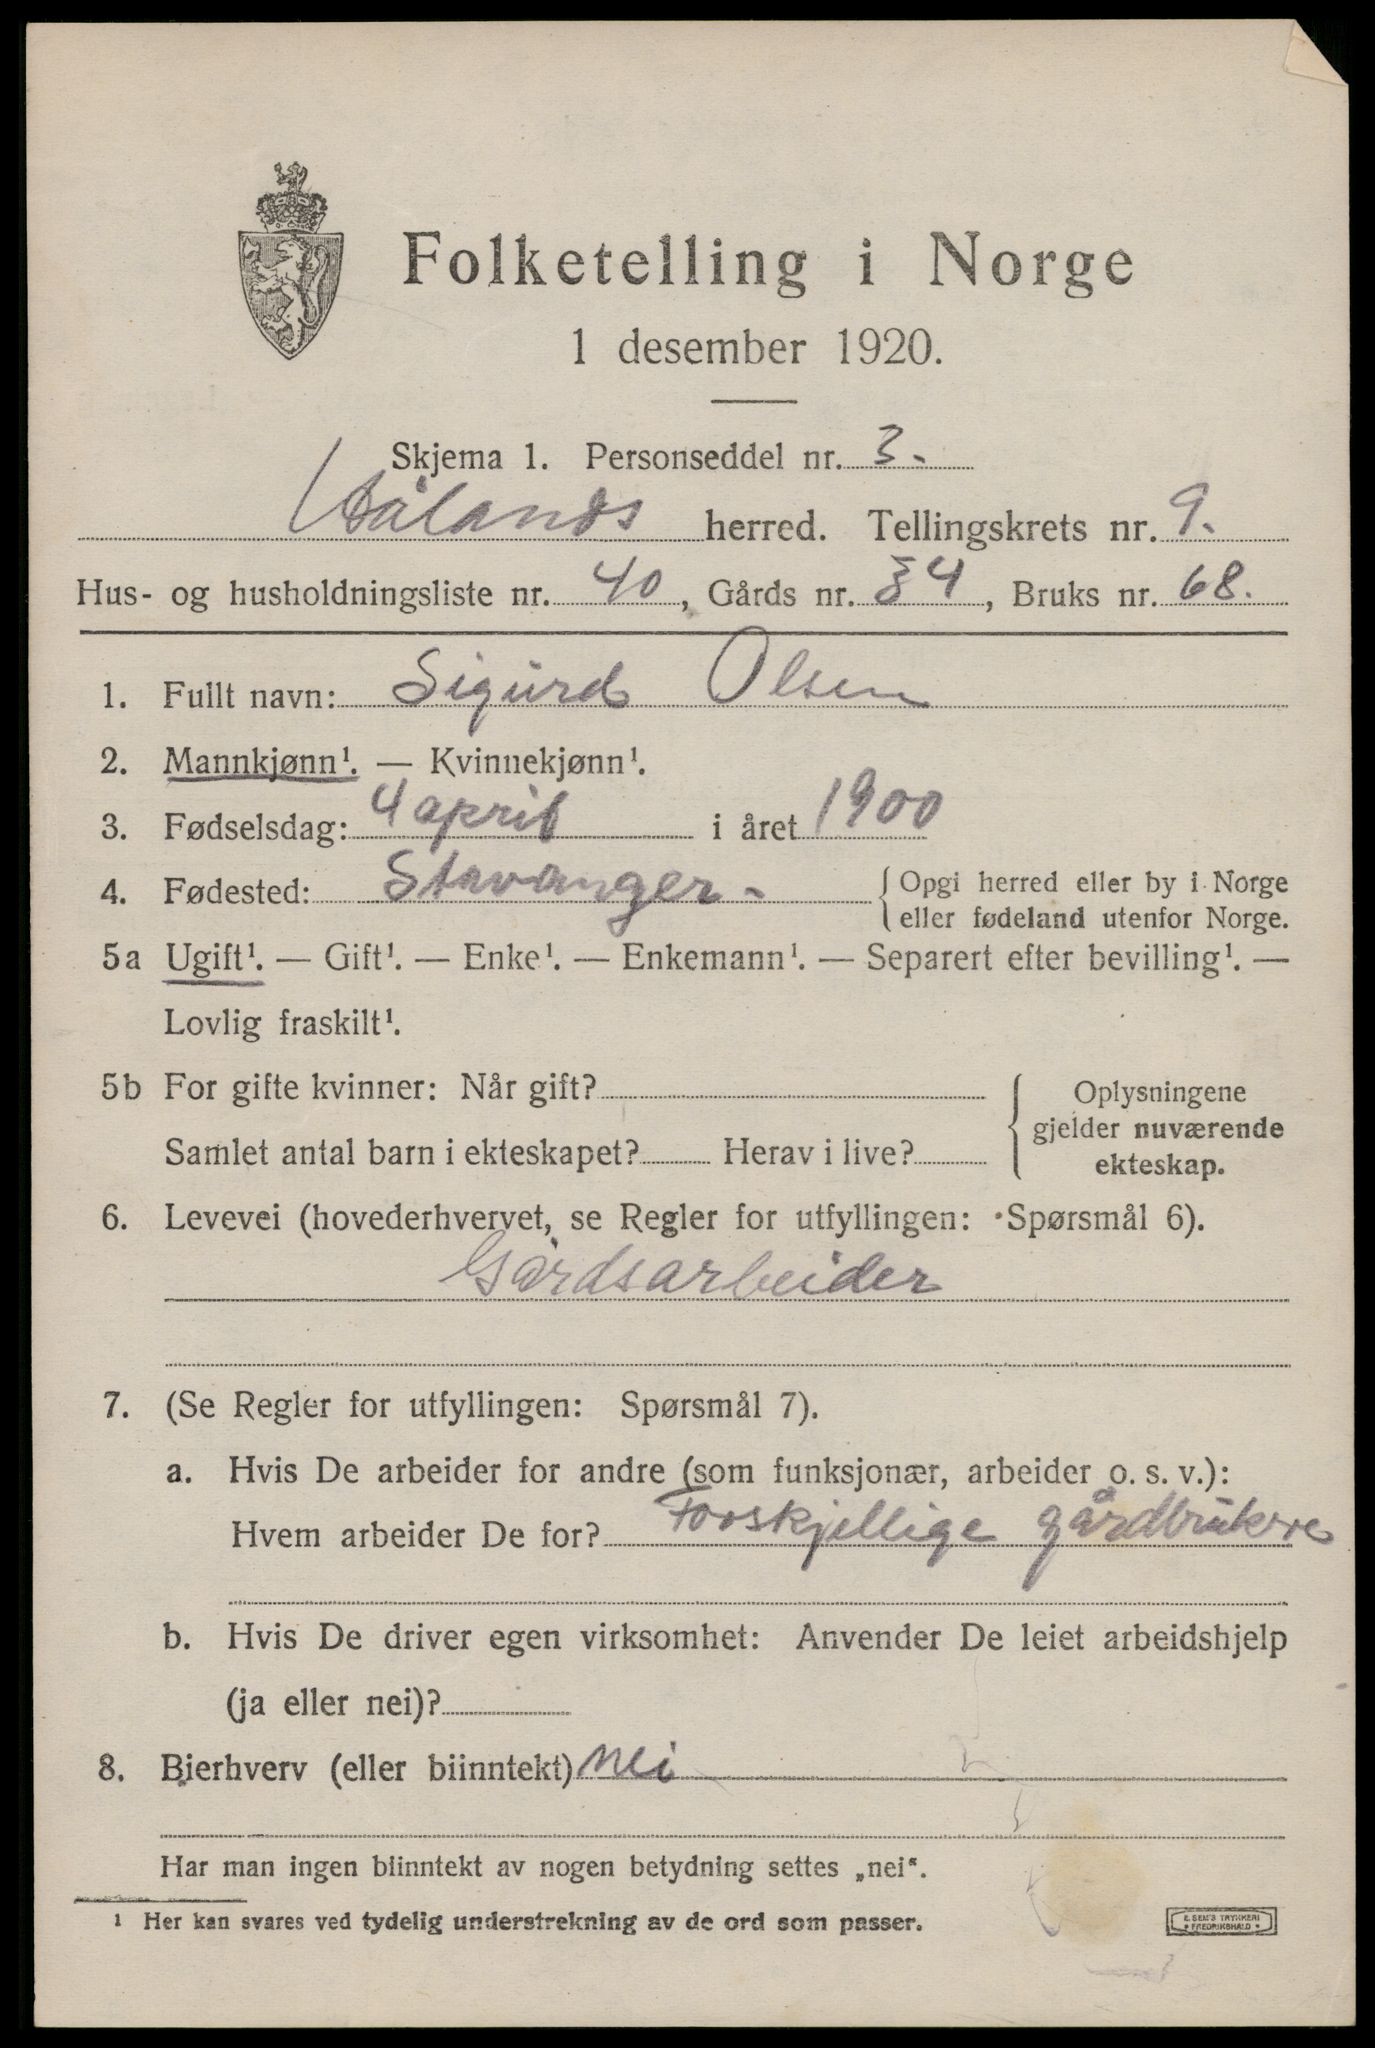 Folketelling i Norge
1 desember 1920.
Skjema 1. Personseddel nr. 3.
Hålands herred. Tellingskrets nr. 9.
Hus- og husholdningsliste nr. 40, Gårds nr. 34, Bruks nr. 68.
1. Fullt navn: Sigurd Olsen
2. Mannkjønn¹. — Kvinnekjønn¹.
3. Fødselsdag: 4 april i året 1900
4. Fødested: Stavanger. { Opgi herred eller by i Norge
eller fødeland utenfor Norge.
5a Ugift¹. — Gift¹. — Enke¹. — Enkemann¹. — Separert efter bevilling¹. —
Lovlig fraskilt¹.
5b For gifte kvinner: Når gift? { Oplysningene
gjelder nuværende
Samlet antal barn i ekteskapet? Herav i live?
ekteskap.
6. Levevei (hovederhvervet, se Regler for utfyllingen: Spørsmål 6).
Gårdsarbeider
7. (Se Regler for utfyllingen: Spørsmål 7).
a. Hvis De arbeider for andre (som funksjonær, arbeider o. s. v.):
Hvem arbeider De for? Forskjellige gårdbrukere
b. Hvis De driver egen virksomhet: Anvender De leiet arbeidshjelp
(ja eller nei)?
8. Bierhverv (eller biinntekt) nei
Har man ingen biinntekt av nogen betydning settes „nei“.
¹ Her kan svares ved tydelig understrekning av de ord som passer.
E. SEM'S TRYKKERI
FREDRIKSHALD